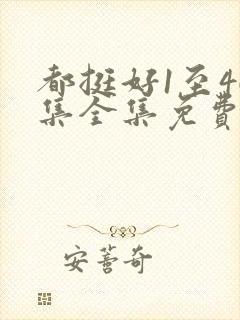 都挺好1至4
集全集免费
安蒼奇